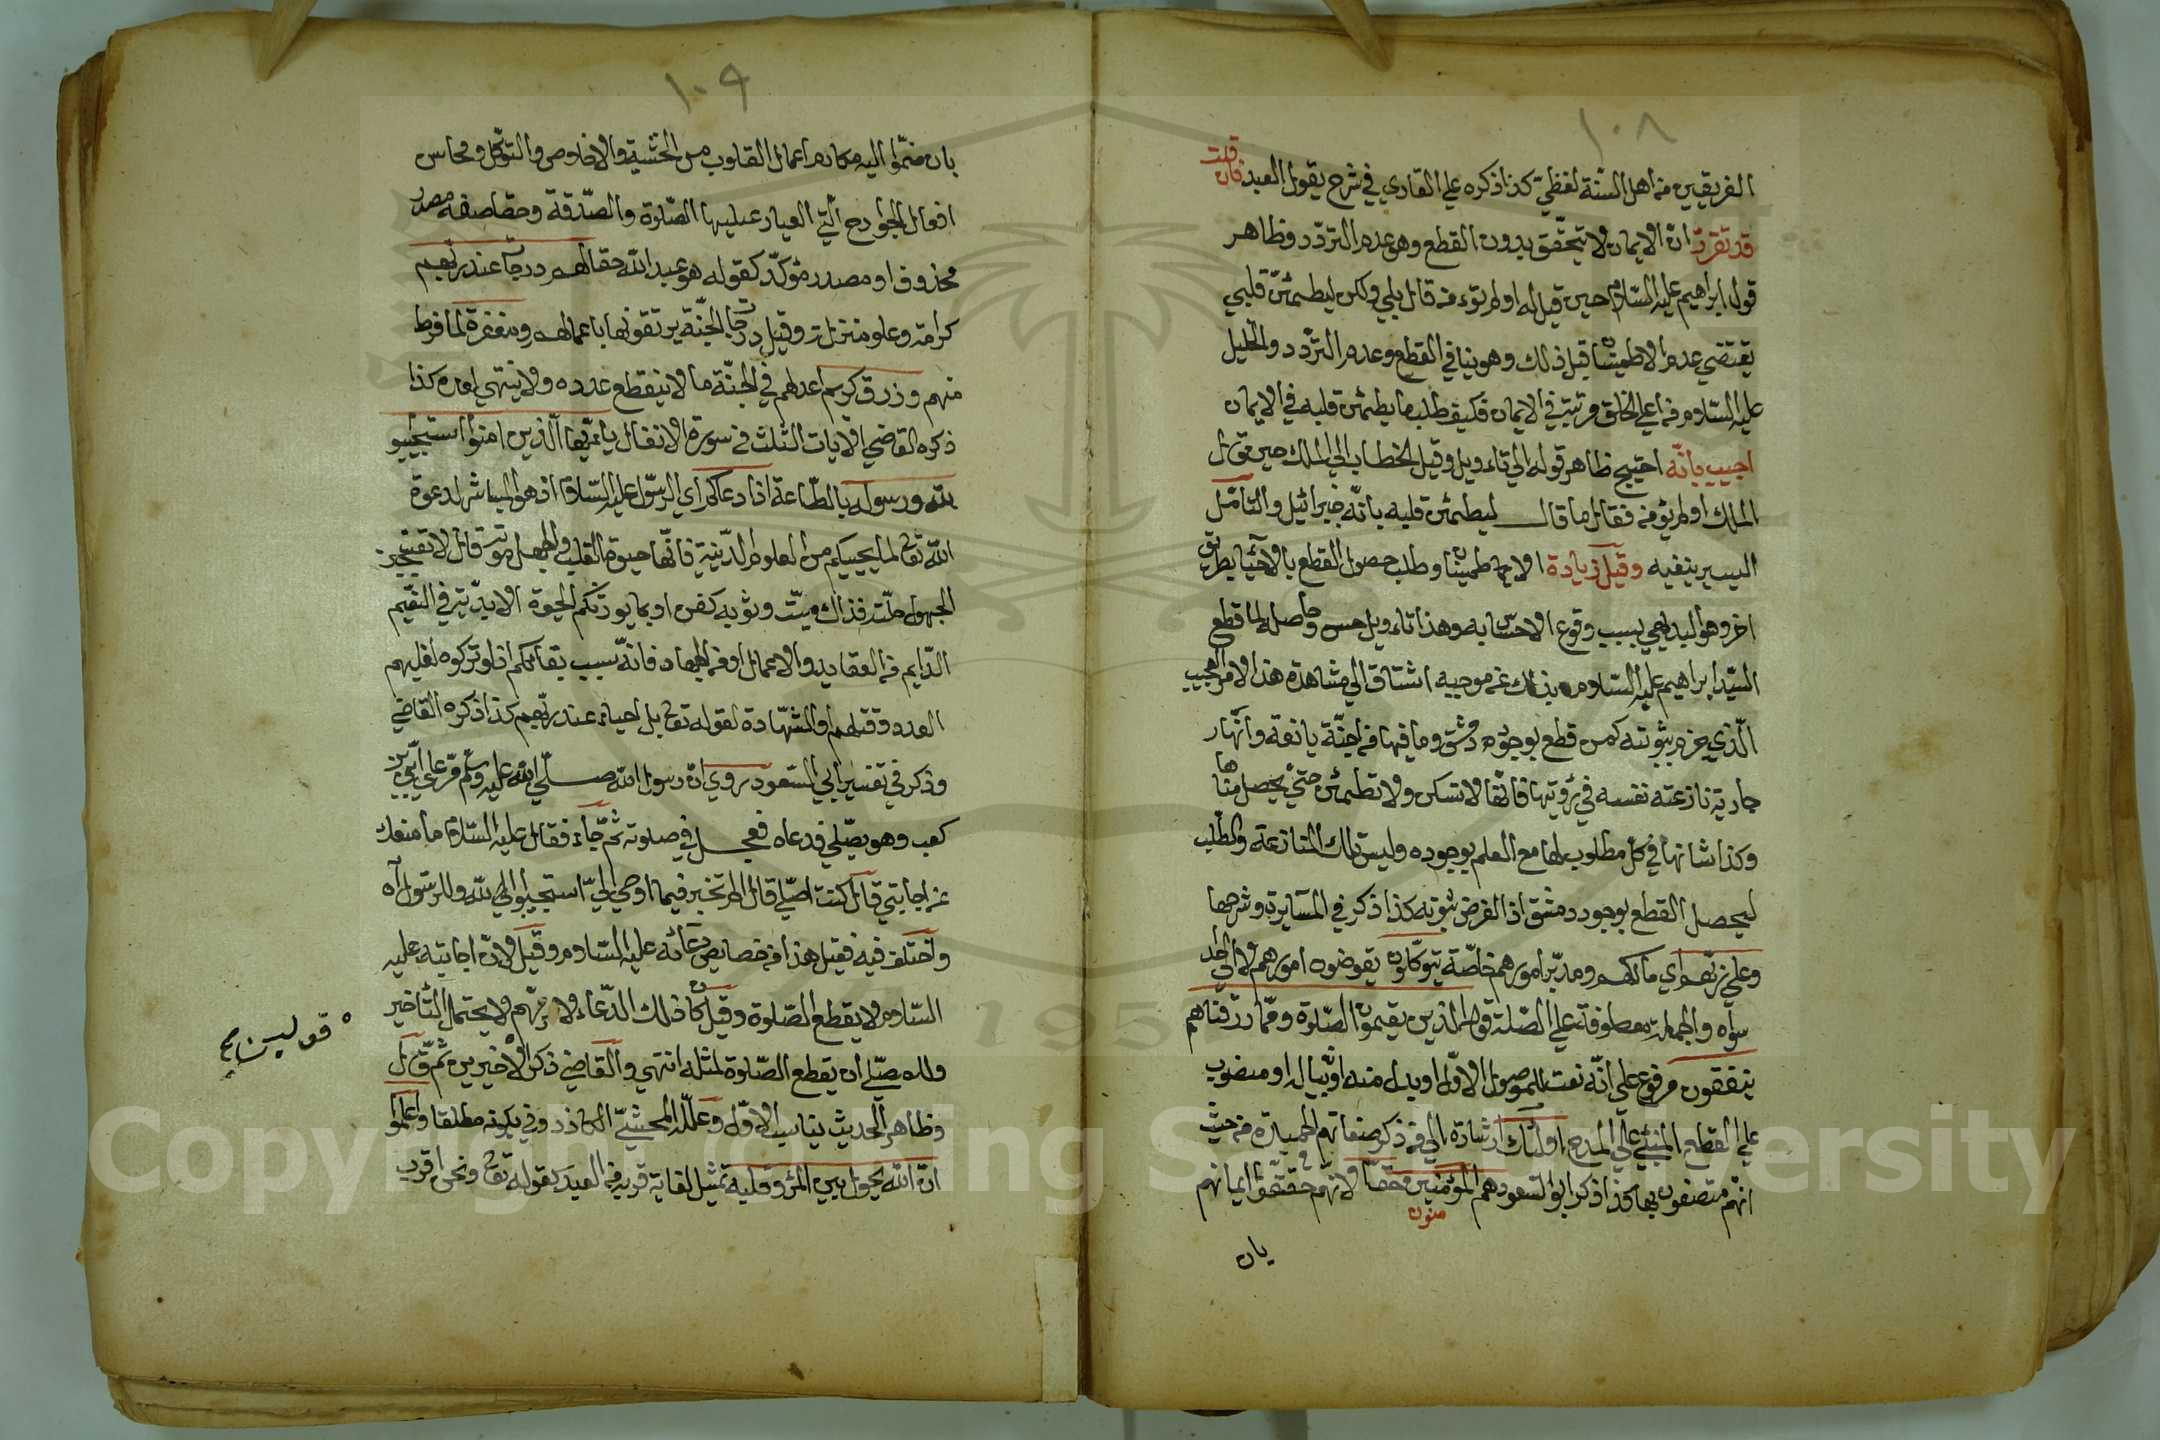 ١٠٨
الفريقين من اهل السّنة لفظيّ كذا ذكره علي القاري في شرح يقول العبد فان قلت
قد تقرّر انّ الايمان لا يتحقّق بدون القطع وهو عدم التردّد وظاهر
قول ابراهيم عليه السّلام حين قيل له اولم تؤمن قال بلي ولكن ليطمئنّ قلبي
يقتضي عدم الاطمينان قبل ذلك وهو ينافي القطع وعدم التردّد والخليل
عليه السّلام من اعلي الخلق مرتبة في الايمان فكيف طلب ما يطمئن قلبه في الايمان
اجيب بانّه احتيج ظاهر قوله الي تاءويل وقيل الخطاب الي الملك حين قال
الملك اولم تؤمن فقال ما قال ليطمئن قلبه بانّه جبرائيل والتأمّل
اليسير ينفيه وقيل زيادة الاطمينان وطلب حصول القطع بالاحيا بطريق
اخر وهو البديهي بسبب وقوع الاحساس به وهذا تاءويل حسن وحاصله لما قطع
السيّد ابراهيم عليه السّلام بذلك عن موجبه اشتاق الي مشاهدة هذا الامر العجيب
الّذي جزم بثبوته كمن قطع بوجود دمشق وما فيها من اجنّة يانعة وانهار
جارية نازعته نفسه في رؤيتها فانّها لا تسكن ولا تطمئنّ حتّي يحصل مناها
وكذا شانها في كلّ مطلوب لها مع العلم بوجوده وليس تلك المنازعة والطّلب
ليحصل القطع بوجود دمشق اذ الفرض ثبوته كذا ذكر في المسايرة وشرحها
وعلي ربّهم اي مالكهم ومدبّر امورهم خاصّة يتوكّلون يفوضون امورهم لا الي احد
سواه والجملة معطوفة علي الصّلة قوله الذين يقيمون الصّلوة وممّا رزقناهم
ينفقون مرفوع علي انّه نعت للموصول الاوّل او بدل منه او بيان له او منصوب
علي القطع المنبئ علي المدح اولئك اشارة الي من ذكر صفاتهم الحميدة من حيث
انّهم متصفون بها كذا ذكر ابو السّعود هم المؤمنون حقّا لانهم حققوا ايمانهم
منون
بان
١٠٩
بان ضمّوا اليه مكارم اعمال القلوب من الخشية والاخلاص والتوكّل ومحاسن
افعال الجوارح الّتي العيار عليها الصّلوة والصّدقة وحقا صفة مصدر
محذوف او مصدر مؤكّد كقوله هو عبد الله حقا لهم درجات عند ربّهم
كرامة وعلو منزلة وقيل درجات الجنّة يرتقونها باعمالهم ومغفرة لما فرط
منهم ورزق كريم اعد لهم في الجنّة ما لا ينقطع عدده ولا ينتهي امده كذا
ذكره القاضي الايات الثلث في سورة الانفال يا ايّها الّذين امنوا استجيبوا
لله ورسوله بالطّاعة اذا دعاكم اي الرسول عليه السّلام اذ هو المباشر لدعوة
الله تع لما يحييكم من العلوم الدّينية فانّها حيوة القلب والجهل موته قال لا تعجبن
الجهول حلّته فذاك ميّت وثوبه كفن او بما يورثكم الحيوة الابديّة في النعيم
الدّايم من العقايد والاعمال او من الجهاد فانّه سبب بقائكم اذ لو تركوه لغلبهم
العدو وقتلهم او الشهّادة لقوله تع بل احياء عند ربّهم كذا ذكره القاضي
وذكر في تفسير ابي السّعود روي انّ رسول الله صلّي الله عليه وسلّم مرّ علي ابيّ بن
كعب وهو يصّلي فدعاه فعجل في صلوته ثمّ جاء فقال عليه السّلام ما منعك
عن اجابتي قال كنت اصلّي قال الم تخبر فيما اوحي اليّ استجيبوا لله وللرسول اه
واختلف فيه فقيل هذا من خصايص دعائه عليه السّلام وقيل لانّ اجابته عليه
السّلام لا يقطع الصّلوة وقيل كان ذلك الدّعاء لامر مهم لا يحتمل التّاخير
وللمصلّي ان يقطع الصّلوة لمثله انتهي والقاضي ذكر الاخيرين ثمّ قال
وظاهر الحديث يناسب الاوّل وعلّله المحشيّ الكاذروني بكونه مطلقا واعلموا
انّ الله يحول بين المرء وقلبه تمثيل لغاية قربه من العبد كقوله تع ونحن اقرب
Copyright © King Saud University
1957